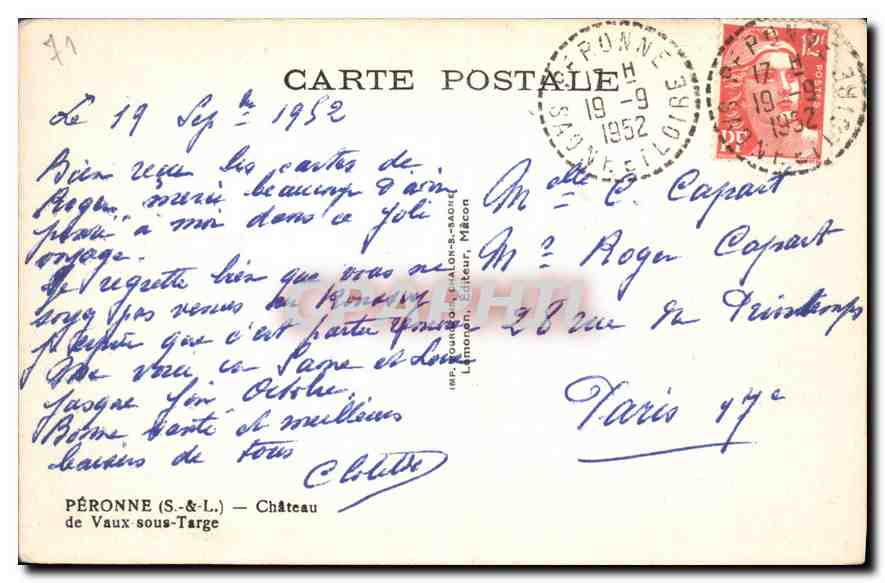 71
CARTE POSTALE
PERONNE
17 H
19 -9
1952
SAONE ET LOIRE
12F
POSTES
PERONNE
17 H
19 -9
1952
Le 19 Sepbre 1952
Bien reçu les cartes de
Roger, merci beaucoup d'avoir
pensé à moi dans ce joli
voyage.
Je regrette bien que vous ne
soyez pas venus au
que c'est partie
Me voici en Saone et Loire
jusque fin Octobre.
Bonne santé et meilleurs
baisers de tous
Clotilde
Melle C. Capart
Mr Roger Capart
28 rue du Printemps
Paris 17e
IMP. BOURGEOIS, CHALON-S.-SAONE
Lamonon, Editeur, Mâcon
CPAPHIL
PÉRONNE (S.-&-L.) — Château
de Vaux-sous-Targe